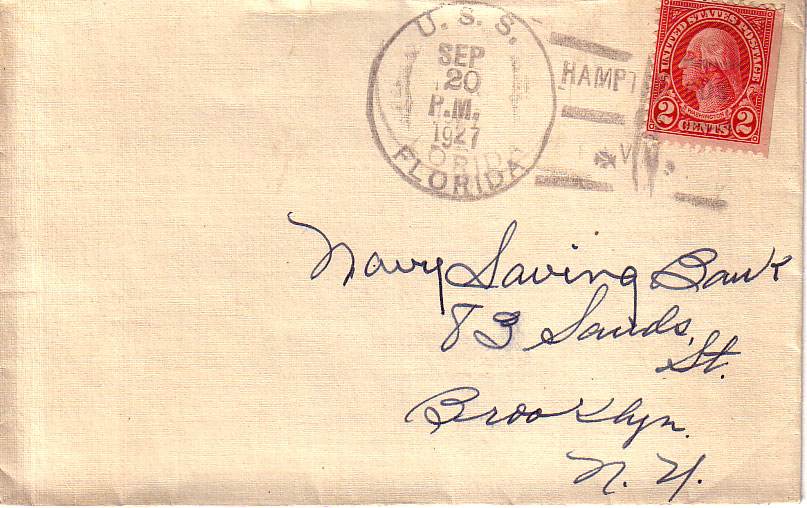 U. S. S.
SEP
20
P.M.
1927
FLORIDA
HAMPT
V
UNITED STATES POSTAGE
WASHINGTON
2 CENTS 2
Navy Saving Bank
83 Sands
St.
Brooklyn.
N. Y.